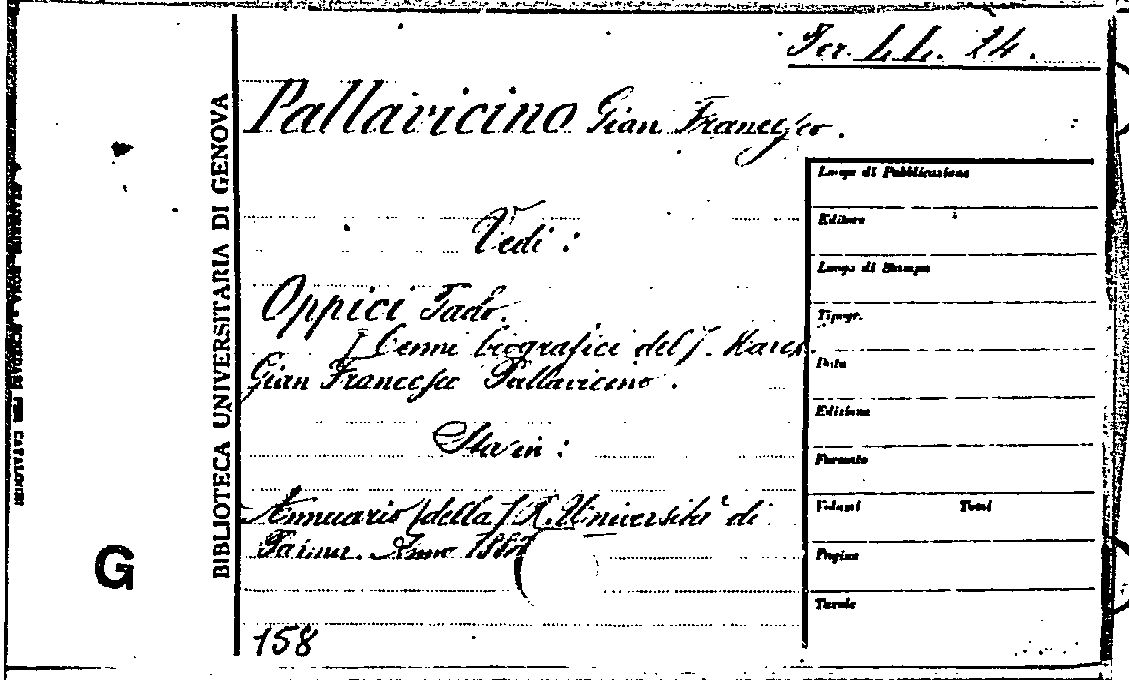 Per. L.L. 24.
Pallavicino Gian Francesco.
Vedi:
Oppici Tado.
[Cenni biografici del]. March.
Gian Francesco Pallavicino.
Sta in:
Annuario [della] R. Università di
Parma. Anno
158
BIBLIOTECA UNIVERSITARIA DI GENOVA
G
Luogo di Pubblicazione
Editore
Luogo di Stampa
Tipogr.
Data
Edizione
Formato
Volumi Tomi
Pagine
Tavole
PER CATALOGHI